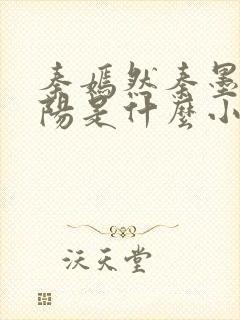 秦嫣然秦墨
陽是什麼小
沃天堂